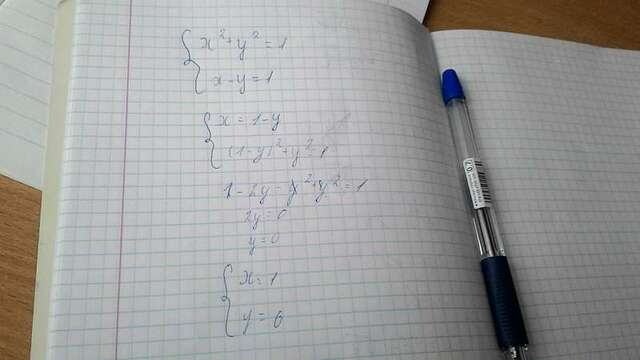 x² + y² = 1
x - y = 1
x = 1 - y
(1-y)² + y² = 1
1 - 2y - y² + y² = 1
2y = 0
y = 0
x = 1
y = 0
0.7